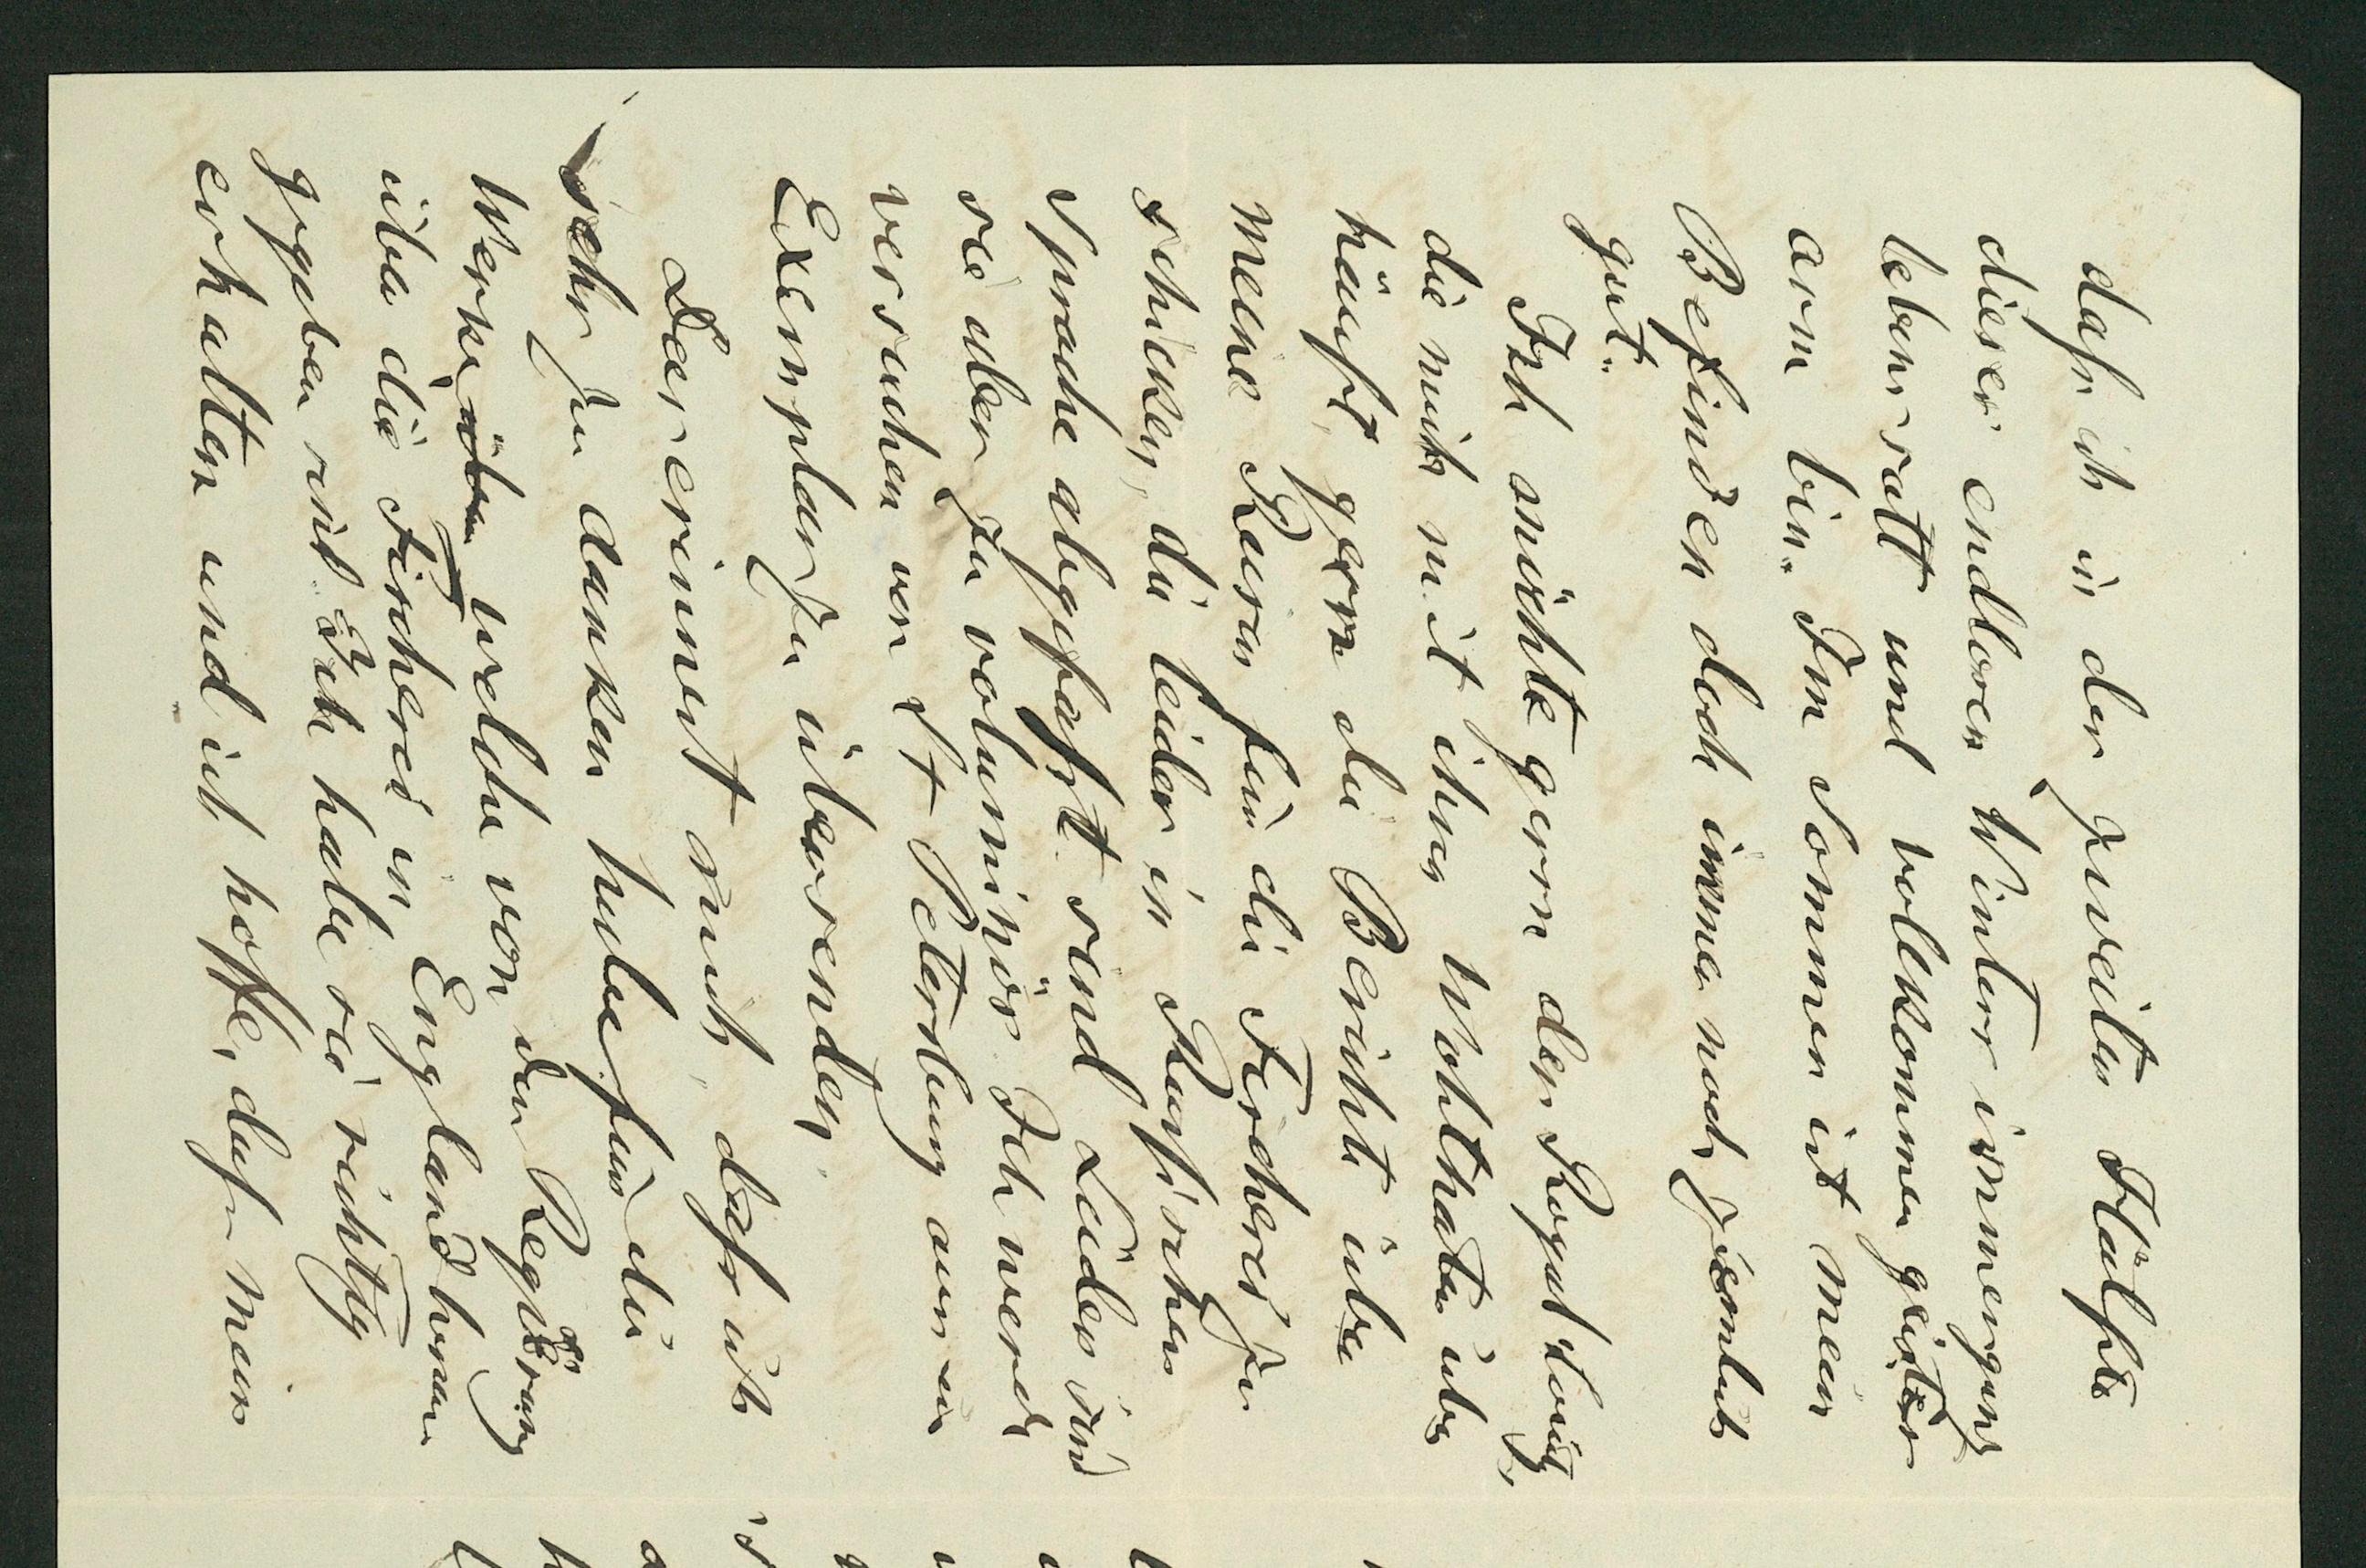 daß ich in der zweiten Hälfte
dieses endlosen Winters immer ganz
lebenssatt und vollkommen geistes
arm bin. Im Sommer ist mein
Befinden doch immer noch ziemlich
gut.
Ich möchte gern der Royal Society,
die mich mit ihren Wohlthaten über
häuft, gern die Berichte über
meine Reisen für die Fischerei zu
schicken, die leider in Russischer
Sprache abgefaßt sind. Leider sind
sie aber zu voluminös. Ich werde
versuchen von St Petersburg aus ein
Exemplar zu übersenden.
Das erinnert mich, daß ich
sehr zu danken habe für die
Werke, über welche von der Regierung
über die Fischerei in England heraus
gegeben sind. Ich habe sie richtig
erhalten und ich hoffe, daß mein